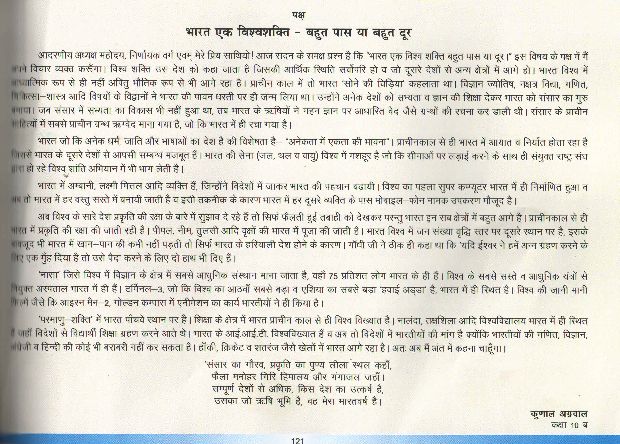 पक्ष
भारत एक विश्वशक्ति - बहुत पास या बहुत दूर
आदरणीय अध्यक्ष महोदय, निर्णायक वर्ग एवम् मेरे प्रिय साथियो! आज सदन के समक्ष प्रश्न है कि "भारत एक विश्व शक्ति बहुत पास या दूर।" इस विषय के पक्ष में मैं
अपने विचार व्यक्त करूँगा। विश्व शक्ति उस देश को कहा जाता है जिसकी आर्थिक स्थिति सर्वोपरि हो व जो दूसरे देशों से अन्य क्षेत्रों में आगे हो। भारत विश्व में
आध्यात्मिक रूप से ही नहीं अपितु भौतिक रूप से भी आगे रहा है। प्राचीन काल में तो भारत 'सोने की चिड़िया' कहलाता था। विज्ञान ज्योतिष, नक्षत्र विद्या, गणित,
चिकित्सा-शास्त्र आदि विषयों के विद्वानों ने भारत की पावन धरती पर ही जन्म लिया था। उन्होंने अनेक देशों को सभ्यता व ज्ञान की शिक्षा देकर भारत को संसार का गुरु
बनाया। जब संसार में सभ्यता का विकास भी नहीं हुआ था, तब भारत के ऋषियों ने गहन ज्ञान पर आधारित वेद जैसे ग्रन्थों की रचना कर डाली थी। संसार के प्राचीन
साहित्यों में सबसे प्राचीन ग्रन्थ ऋग्वेद माना गया है, जो कि भारत में ही रचा गया है।
भारत जो कि अनेक धर्म, जाति और भाषाओं का देश है की विशेषता है- "अनेकता में एकता की भावना"। प्राचीनकाल से ही भारत में आयात व निर्यात होता रहा है
जिससे भारत के दूसरे देशों से आपसी सम्बन्ध मजबूत हैं। भारत की सेना (जल, थल व वायु) विश्व में मशहूर है जो कि सीमाओं पर लड़ाई करने के साथ ही संयुक्त राष्ट्र संघ
द्वारा हो रहे विश्व शांति अभियान में भी भाग लेती है।
भारत में अम्बानी, लक्ष्मी मित्तल आदि व्यक्ति हैं, जिन्होंने विदेशों में जाकर भारत की पहचान बढायी। विश्व का पहला सुपर कम्प्यूटर भारत में ही निर्माणित हुआ व
अब तो भारत में हर वस्तु सस्ते में बनायी जाती है व इसी तकनीक के कारण भारत में हर दूसरे व्यक्ति के पास मोबाइल-फोन नामक उपकरण मौजूद है।
अब विश्व के सारे देश प्रकृति की रक्षा के बारे में सुझाव दे रहे हैं तो सिर्फ फैलती हुई तबाही को देखकर परन्तु भारत इन सब क्षेत्रों में बहुत आगे हैं। प्राचीनकाल से ही
भारत में प्रकृति की रक्षा की जाती रही है। पीपल, नीम, तुलसी आदि वृक्षों की भारत में पूजा की जाती है। भारत विश्व में जन संख्या वृद्धि स्तर पर दूसरे स्थान पर है, इसके
बावजूद भी भारत में खान-पान की कमी नहीं पड़ती तो सिर्फ भारत के हरियाली देश होने के कारण। गाँधी जी ने ठीक ही कहा था कि 'यदि ईश्वर ने हमें अन्न ग्रहण करने के
लिए एक मुँह दिया है तो उसे पैदा करने के लिए दो हाथ भी दिए हैं।
'नासा' जिसे विश्व में विज्ञान के क्षेत्र में सबसे आधुनिक संस्थान माना जाता है, वहाँ 75 प्रतिशत लोग भारत के ही हैं। विश्व के सबसे सस्ते व आधुनिक यंत्रों से
नियुक्त अस्पताल भारत में ही हैं। टर्मिनल-3, जो कि विश्व का आठवाँ सबसे बड़ा व एशिया का सबसे बड़ा 'हवाई अड्डा' है, भारत में ही स्थित है। विश्व की जानी मानी
फिल्में जैसे कि आइरन मैन-2, गोल्डन कम्पास में एनीमेशन का कार्य भारतीयों ने ही किया है।
'परमाणु-शक्ति' में भारत पाँचवे स्थान पर है। शिक्षा के क्षेत्र में भारत प्राचीन काल से ही विश्व विख्यात है। नालंदा, तक्षशिला आदि विश्वविद्यालय भारत में ही स्थित
हैं जहाँ विदेशों से विद्यार्थी शिक्षा ग्रहण करने आते थे। भारत के आई.आई.टी. विश्वविख्यात हैं व अब तो विदेशों में भारतीयों की मांग है क्योंकि भारतीयों की गणित, विज्ञान,
अंग्रेजी व हिन्दी की कोई भी बराबरी नहीं कर सकता है। हॉकी, क्रिकेट व शतरंज जैसे खेलों में भारत आगे रहा है। अतः अब मैं अंत में कहना चाहूँगा।
'संसार का गौरव, प्रकृति का पुण्य लीला स्थल कहाँ,
फैला मनोहर गिरि हिमालय और गंगाजल जहाँ।
सम्पूर्ण देशों से अधिक, किस देश का उत्कर्ष है,
उसका जो ऋषि भूमि है, वह मेरा भारतवर्ष है।
कुणाल अग्रवाल
कक्षा 10 ब
121